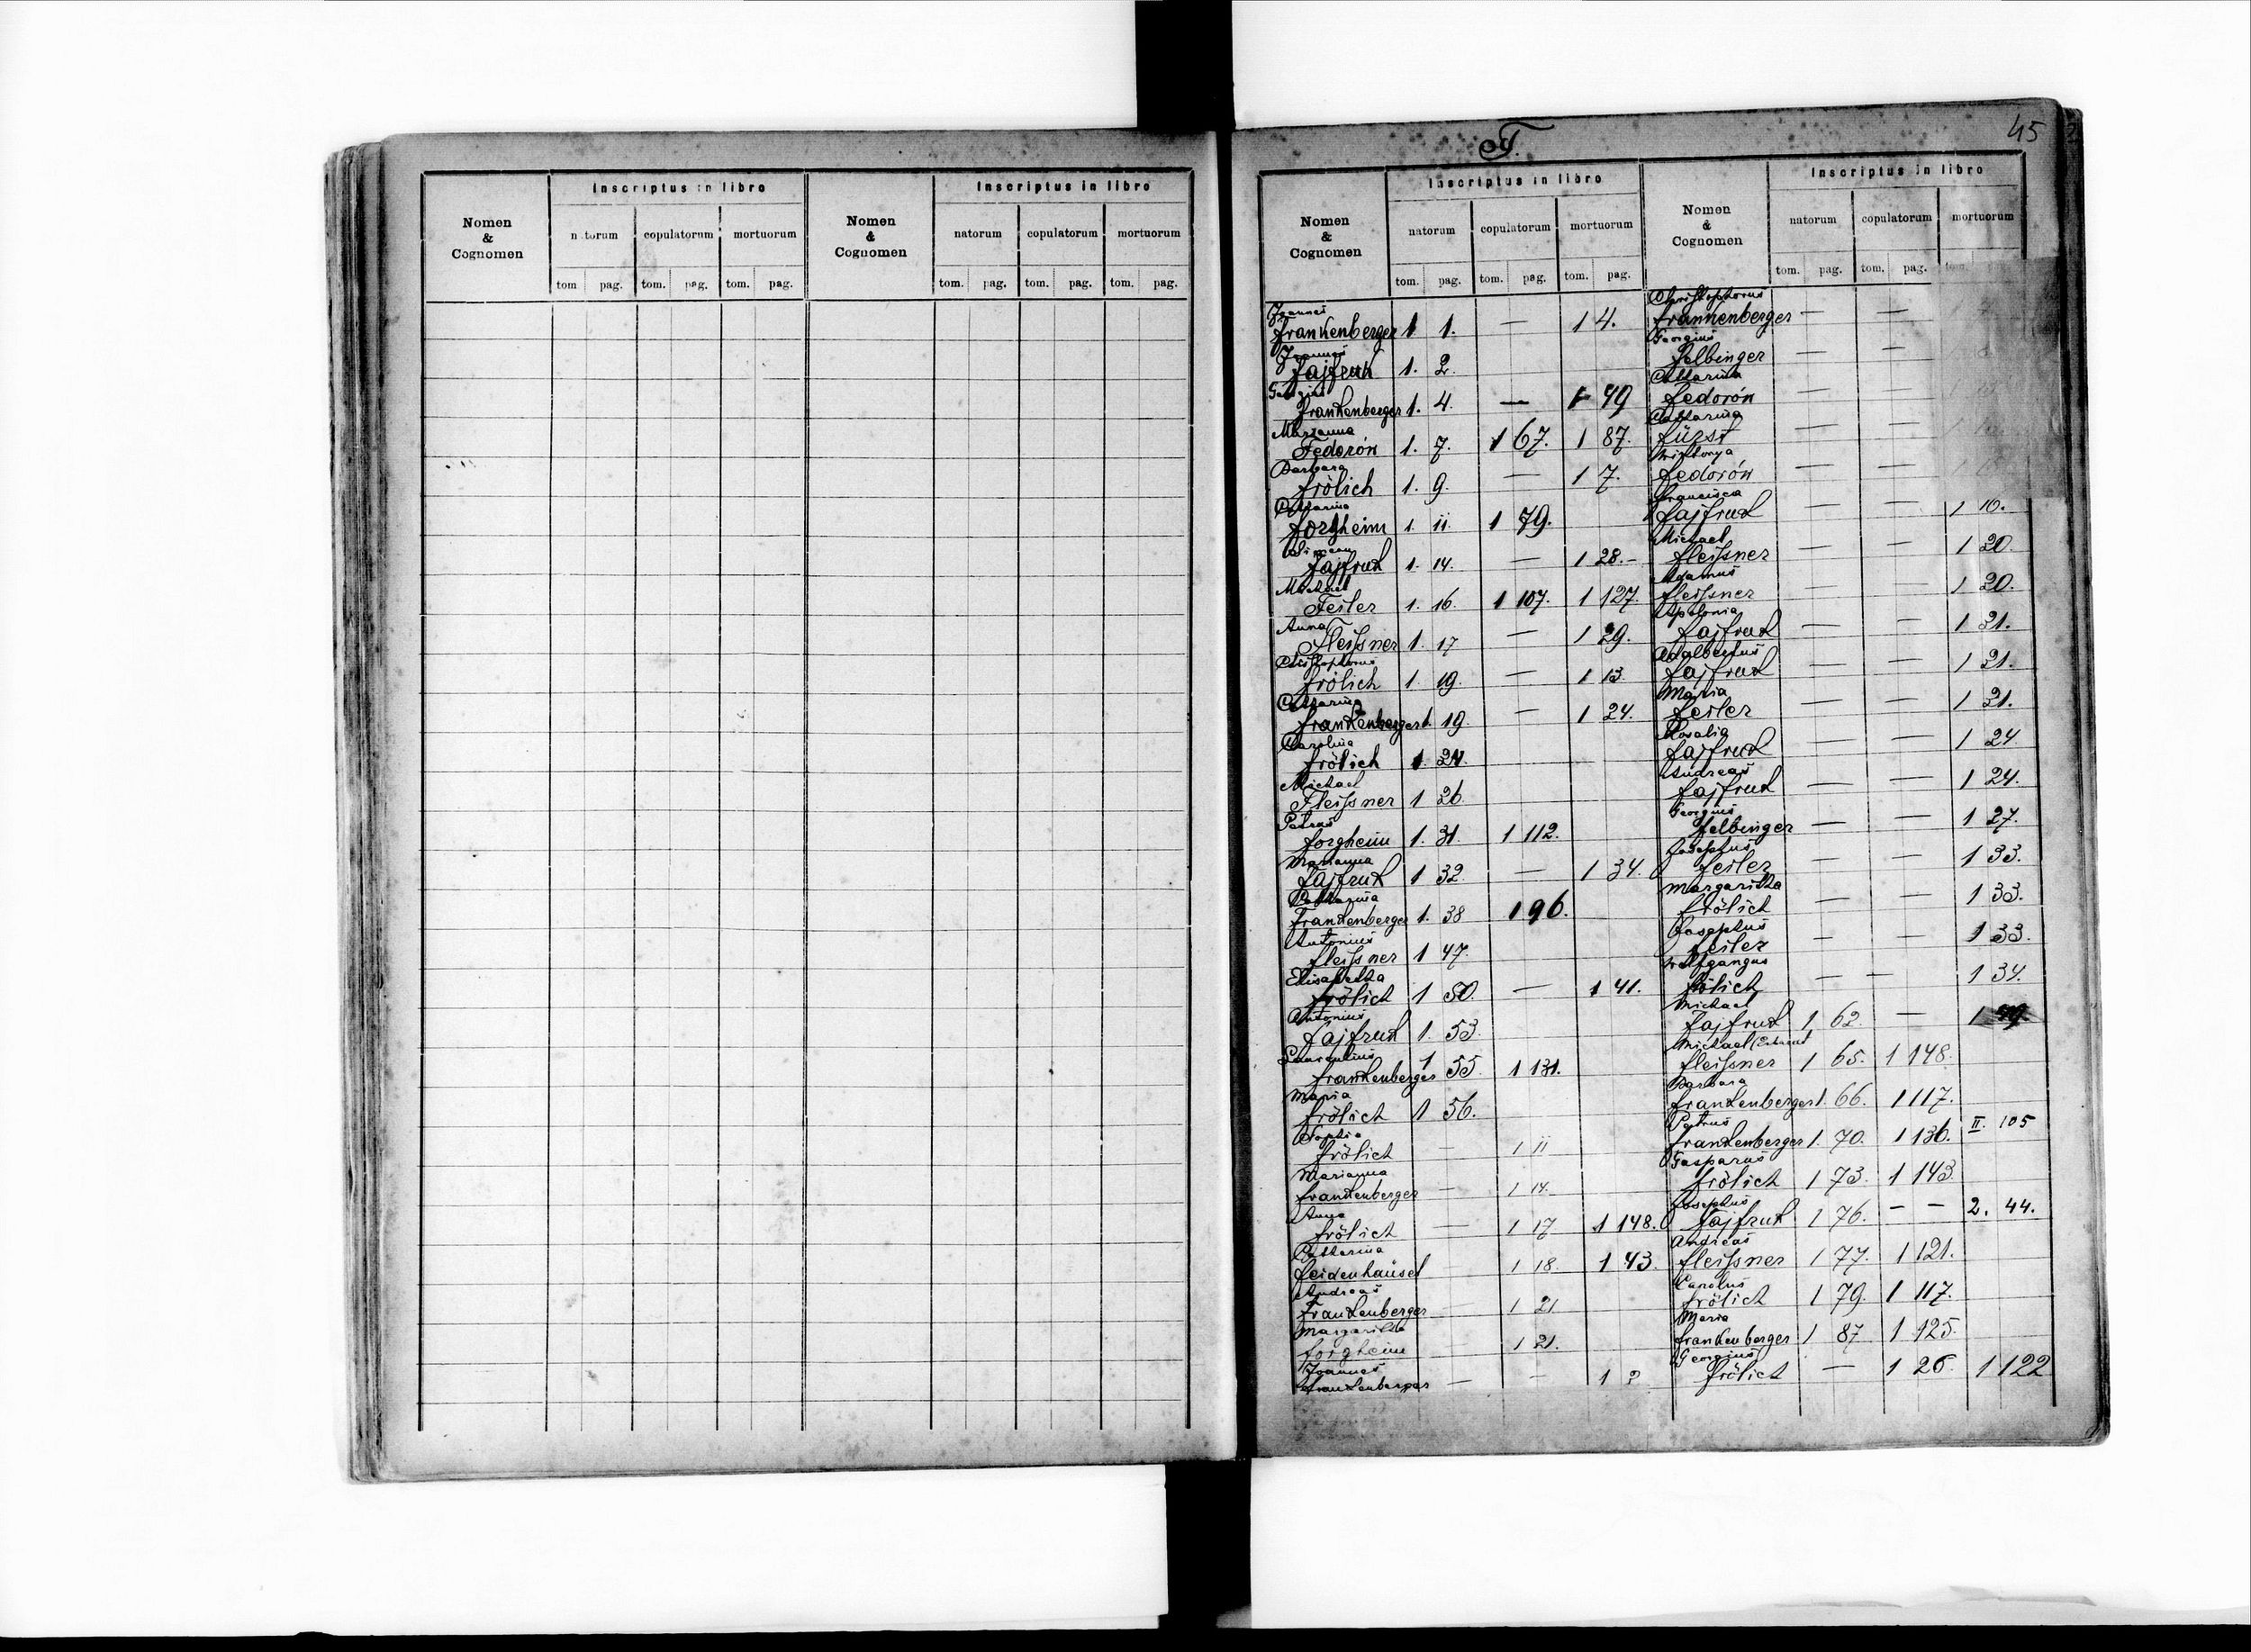 Nomen & Cognomen
Inscriptus in libro
natorum copulatorum mortuorum
tom pag. tom. pag. tom. pag.
Nomen & Cognomen
Inscriptus in libro
natorum copulatorum mortuorum
tom. pag. tom. pag. tom. pag.
F.
45
Nomen & Cognomen
Inscriptus in libro
natorum copulatorum mortuorum
tom. pag. tom. pag. tom. pag.
Joannes
Frankenberger 1 1. — 1 4.
Joannes
Fajfruk 1. 2.
Georgius
Frankenberger 1. 4. — 1 49
Marianna
Fedorów 1. 7. 1 67. 1 87.
Barbara
Frölich 1. 9. — 1 7.
Catharina
Forgheim 1. 11. 1 79.
Fajfruk 1. 14. — 1 28. -
Michael
Feiler 1. 16. 1 107. 1 127.
Anna
Fleissner 1. 17 — 1 29.
Christophorus
Frölich 1. 19. — 1 13.
Catharina
Frankenberger 1. 19. — 1 24.
Carolina
Frölich 1. 24.
Michael
Fleissner 1 26.
Petrus
Forgheim 1. 31. 1 112.
Marianna
Fajfruk 1 32. — 1 34.
Catharina
Frankenberger 1. 38 1 96.
Antonius
Fleissner 1 47.
Elisabetha
Frölich 1 50. — 1 41.
Antonius
Fajfruk 1. 53.
Laurentius
Frankenberger 1 55. 1 131.
Maria
Frölich 1 56.
Sophia
Frölich — 1 11
Marianna
Frankenberger — 1 14.
Anna
Frölich — 1 17 1 148.
Catharina
Feidenhäusel — 1 18. 1 43.
Andreas
Frankenberger — 1 21
Margaritha
Forgheim 1 21.
Joannes
Frankenberger — — 1 2
Nomen & Cognomen
Inscriptus in libro
natorum copulatorum mortuorum
tom. pag. tom. pag.
Christophorus
Frankenberger — —
Georgius
Felbinger — —
Catharina
Fedorów — —
Catharina
Fürst — —
Fedorów — —
Francisca
Fajfruk — — 1 16.
Michael
Fleissner — — 1 20.
Adamus
Fleissner — — 1 20.
Apolonia
Fajfruk — — 1 21.
Adalbertus
Fajfruk — — 1 21.
Maria
Feiler — — 1 21.
Rosalia
Fajfruk — — 1 24
Andreas
Fajfruk — — 1 24.
Georgius
Felbinger — — 1 27.
Josephus
Feiler — — 1 33.
Margaritha
Frölich — — 1 33.
Josephus
Feiler — — 1 33.
Wolfgangus
Frölich — — 1 34.
Michael
Fajfruk 1 62. — 1
Michael
Fleissner 1 65. 1 148.
Barbara
Frankenberger 1. 66. 1 117.
Petrus
Frankenberger 1. 70. 1 136. II. 105
Gasparus
Frölich 1 73. 1 143
Josephus
Fajfruk 1 76. — — 2. 44.
Andreas
Fleissner 1 77. 1 121.
Carolus
Frölich 1 79. 1 117.
Maria
Frankenberger 1 87 1 125.
Georgius
Frölich — 1 26. 1 122